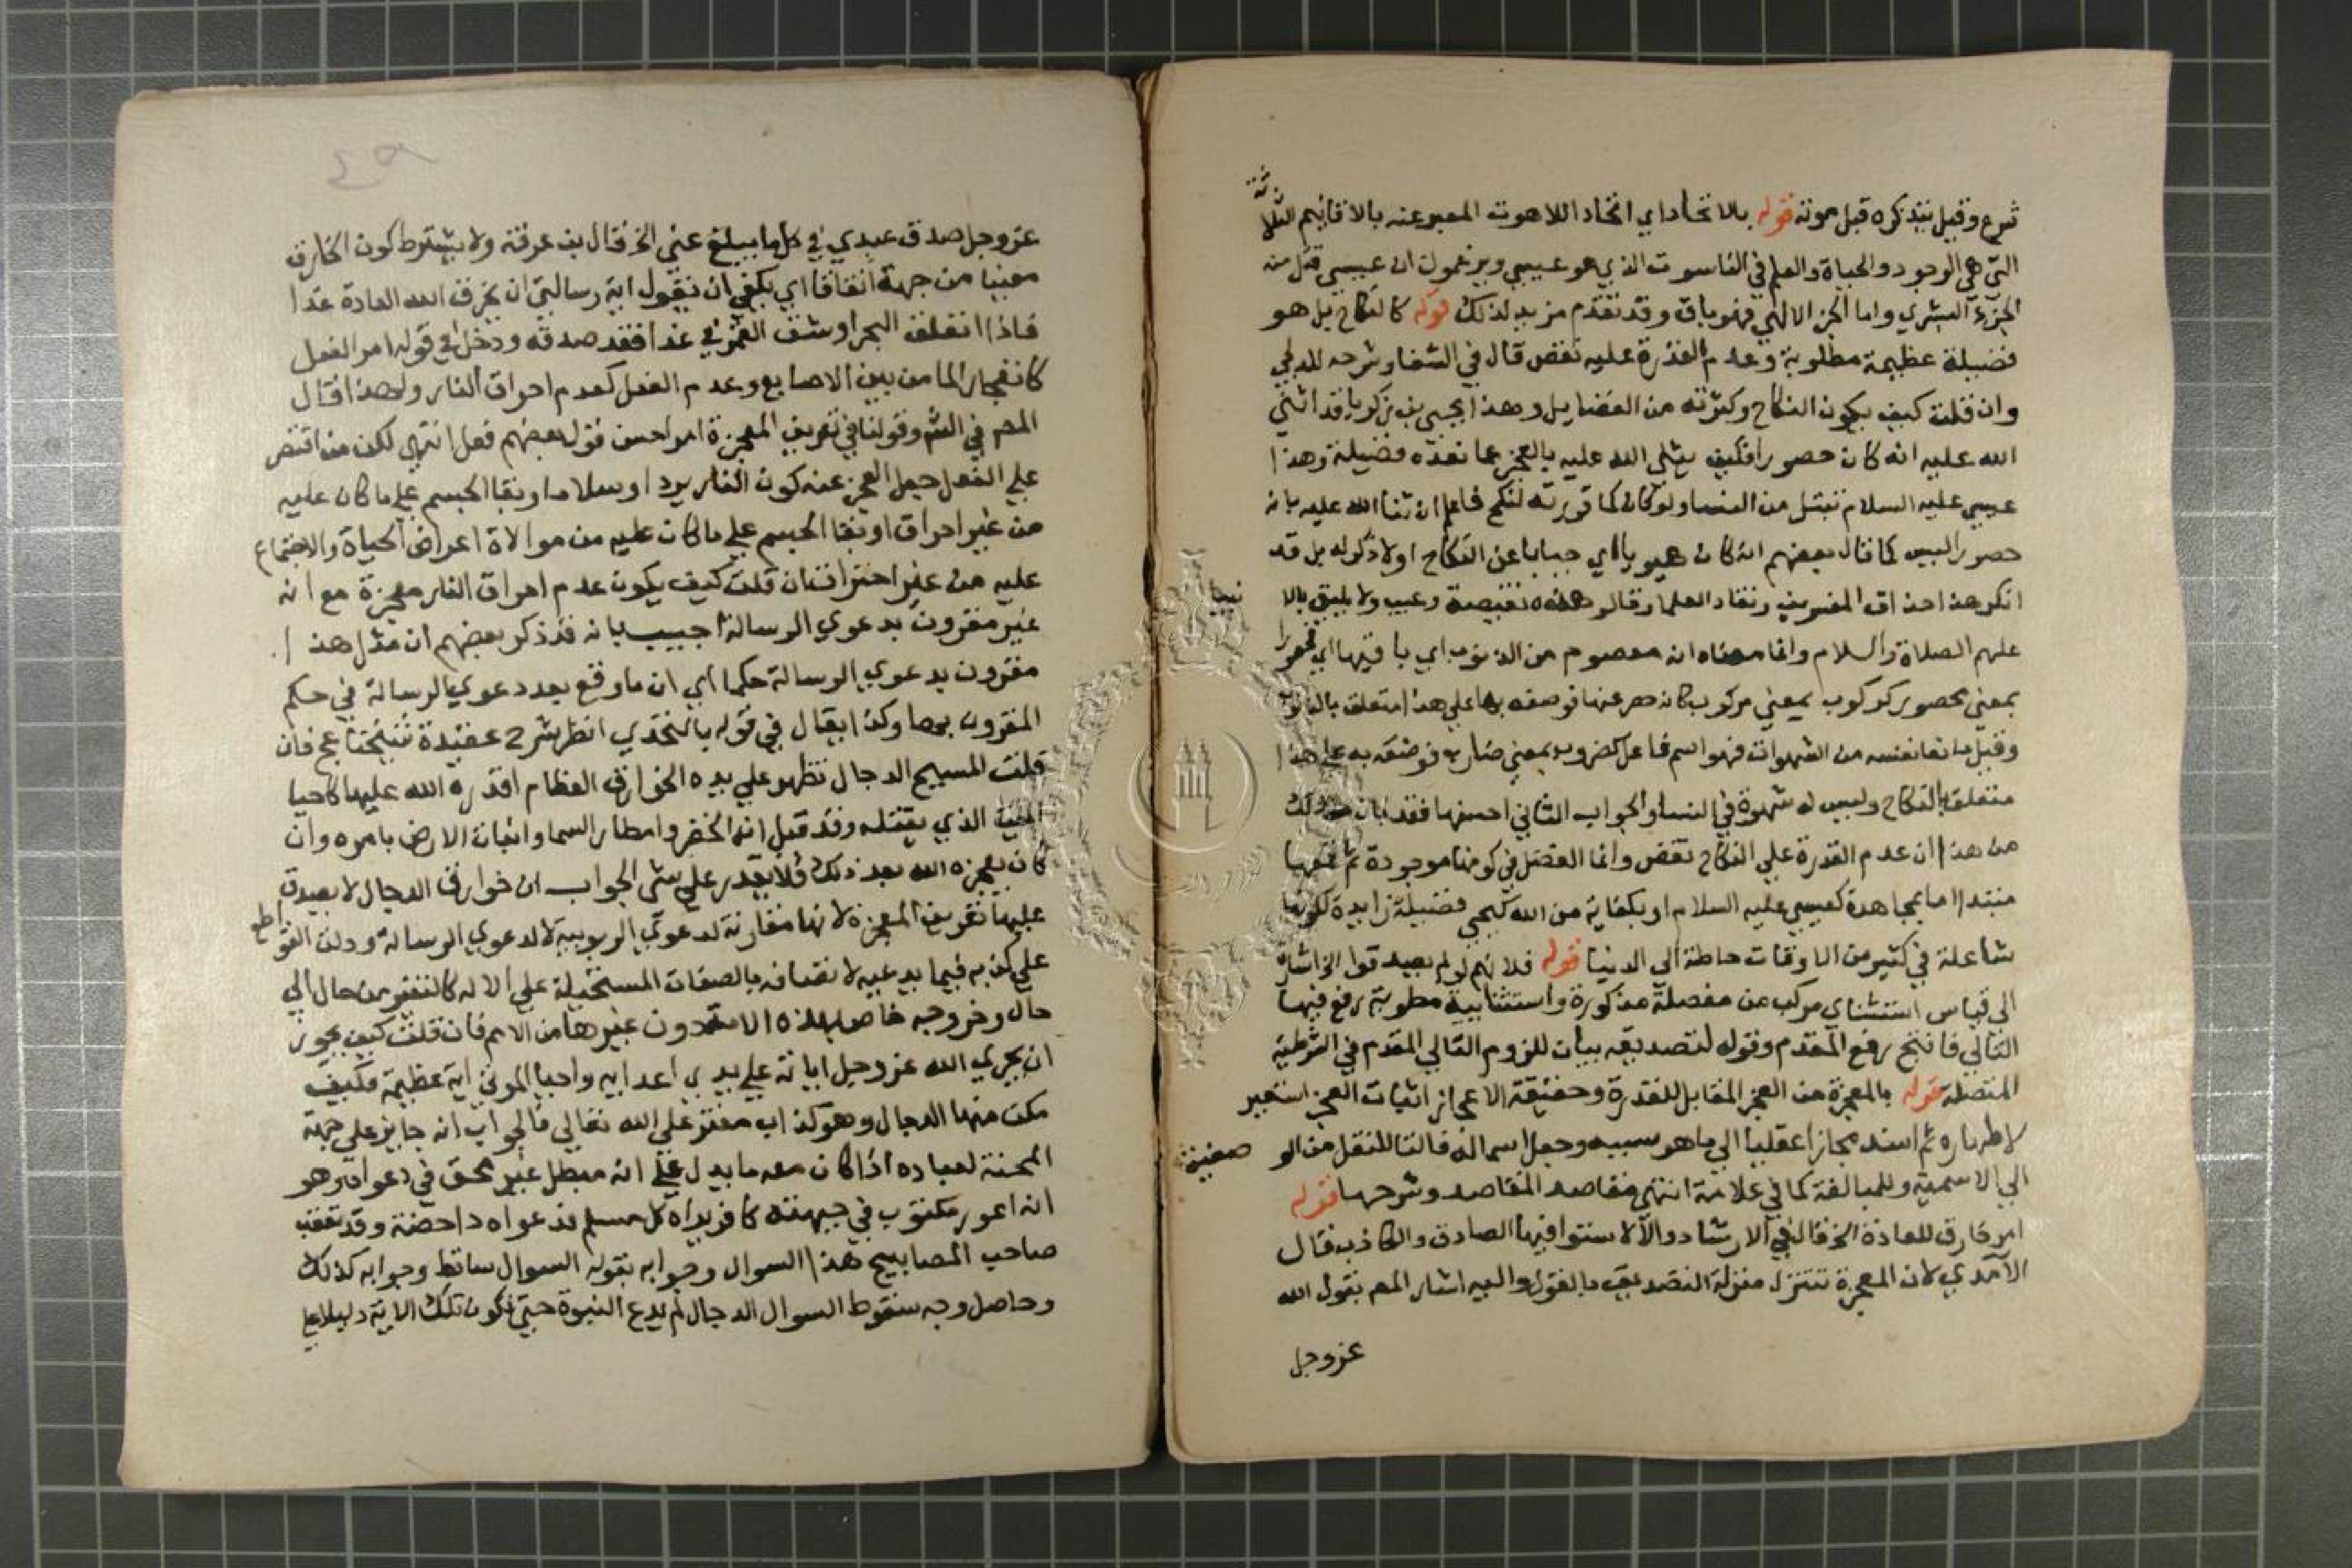 شرع وقيل بتذكره قبل موته قوله بالاتحاد اي اتحاد اللاهوت المعبر عنه بالاقانيم الثلاثة
التي هي الوجود والحياة والعلم في الناسوت الذي هو عيسي ويزعمون ان عيسي قتل منه
الجزء البشري واما الجزء الالهي فهو باق وقد تقدم مزيد لذلك قوله كالنكاح بل هو
فضيلة عظيمة مطلوبة وعدم القدرة عليه نقص قال في الشفا وشرحه للدلجي
وان قلت كيف يكون النكاح وكثرته من الفضايل وهذا يحيي بن زكريا قد اثني
الله عليه انه كان حصورا فكيف يثني الله عليه بالعجز عما نعده فضيلة وهذا
عيسي عليه السلام تبتل من النسا ولو كان كما قررته لنكح فاعلم ان ثنا الله عليه بانه
حصورا ليس كما قال بعضهم انه كان هيوبا اي جبانا عن النكاح او لا ذكر له بل قد
انكر هذا حذاق المفسرين ونقاد العلما وقالوا هذه نقيصة وعيب ولا يليق بالا نبيا
عليهم الصلاة والسلام وانما معناه انه معصوم من الذنوب اي ياتيها اي فحصورا
بمعني محصور كركوب بمعني مركوب كانه حصر عنها فوصفه بها علي هذا متعلق بالذنوب
وقيل مانعا نفسه من الشهوات فهو اسم فاعل كضروب بمعني ضارب فوصفه به علي هذا
متعلق بالنكاح وليس له شهوة في النسا والجواب الثاني احسنها فقد بان لك
من هذا ان عدم القدرة علي النكاح نقص وانما الفضل في كونها موجودة ثم قمعها
مبتدا اما بمجاهدة كعيسي عليه السلام او بكفاية من الله كيحيي فضيلة زايدة لكونها
شاغلة في كثير من الاوقات حاطة الي الدنيا قوله فلانهم لو لم يصدقوا الخ اشارة
الي قياس استثنائي مركب من مفصلة مذكورة واستثنايية مطوية رفع فيها
التالي فانتج رفع المقدم وقوله لتصديقه بيان للزوم التالي المقدم في الشرطية
المتصلة قوله بالمعجزة من العجز المقابل للقدرة وحقيقة الاعجاز اثبات العجز استعير
لاظهاره ثم اسند مجازا عقليا الي ما هو سببه وجعل اسما له فالتا للنقل من الو صفية
الي الاسمية وللمبالغة كما في علامة انتهي مقاصد المقاصد وشرحها قوله
امر خارق للعادة الخ قال في الارشاد والا لاستوا فيها الصادق والكاذب قال
الآمدي لان المعجزة تتنزل منزلة التصديق بالقول واليه اشار المص بقول الله
عز وجل
٤٩
عز وجل صدق عبدي في كل ما يبلغ عني الخ قال بن عرفة ولا يشترط كون الخارق
معينا من جهة اتفاقا اي يكفي ان يقول اية رسالتي ان يخرق الله العادة غدا
فاذا انفلق البحر او شق القمر في غد فقد صدقه ودخل في قوله امر الفعل
كانفجار الما من بين الاصابع وعدم الفعل كعدم احراق النار ولهذا قال
المص في الشرح وقولنا في تعريف المعجزة امر احسن من قول بعضهم فعل انتهي لكن من اقتصر
علي الفعل جعل المعجز عنه كون النار بردا وسلاما وبقا الجسم علي ما كان عليه
من غير احراق او بقا الجسم علي ما كان عليه من موالاة اعراض الحياة والاجتماع
عليه من غير احتراق فان قلت كيف يكون عدم احراق النار معجزة مع انه
غير مقرون بدعوي الرسالة اجيب بانه قد ذكر بعضهم ان مثل هذا
مقرون بدعوي الرسالة حكما اي ان ما وقع بعد دعوي الرسالة في حكم
المقرون بها وكذا يقال في قوله بالتحدي انظر شرح عقيدة شيخنا عج فان
قلت المسيح الدجال تظهر علي يده الخوارق العظام اقدره الله عليها كاحيا
الميت الذي يقتله وقد قيل انه الخضر وامطار السما وانبات الارض بامره وان
كان يعجزه الله بعد ذلك فلا يقدر علي شي الجواب ان خوارق الدجال لا يصدق
عليها تعريف المعجزة لانها مقارنة لدعوي الربوبية لا لدعوي الرسالة ودلت القواطع
علي كذبه فيما يدعيه لاتصافه بالصفات المستحيلة علي الاله كالتغير من حال الي
حال وخروجه خاص بهذه الامة دون غيرها من الامم فان قلت كيف يجوز
ان يجري الله عز وجل اياته علي يدي اعدايه واحيا الموتي اية عظيمة فكيف
مكن منها الدجال وهو كذاب مفتر علي الله تعالي فالجواب انه جايز علي جهة
المحنة لعباده اذا كان معه ما يدل علي انه مبطل غير محق في دعواه وهو
انه اعور مكتوب في جبهته كافر يراه كل مسلم فدعواه داحضة وقد تعقب
صاحب المصابيح هذا السوال وجوابه بقوله السوال ساقط وجوابه كذلك
وحاصل وجه سقوط السوال الدجال لم يدع النبوة حتي تكون تلك الاية دليلا علي